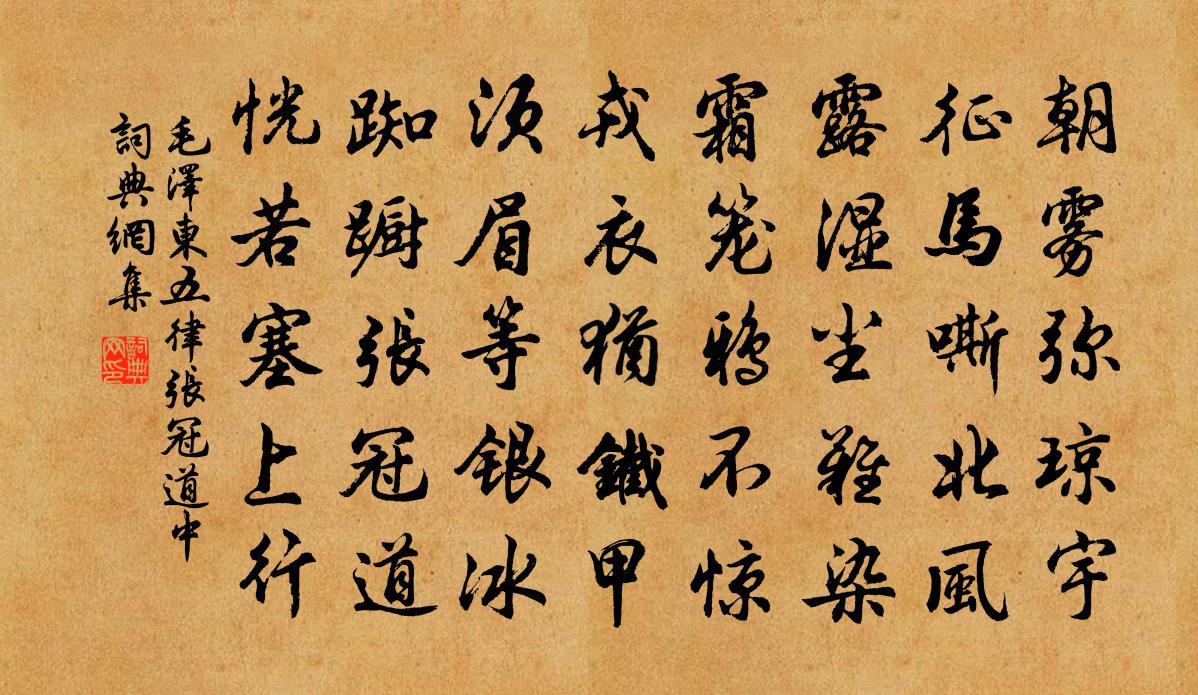 朝雾弥琼宇
征馬嘶北風
露湿尘難染
霜笼鸦不惊
戎衣猶鐵甲
须眉等银冰
踟蹰張冠道
恍若塞上行
毛澤東五律張冠道中
詞典網集
詞典网印